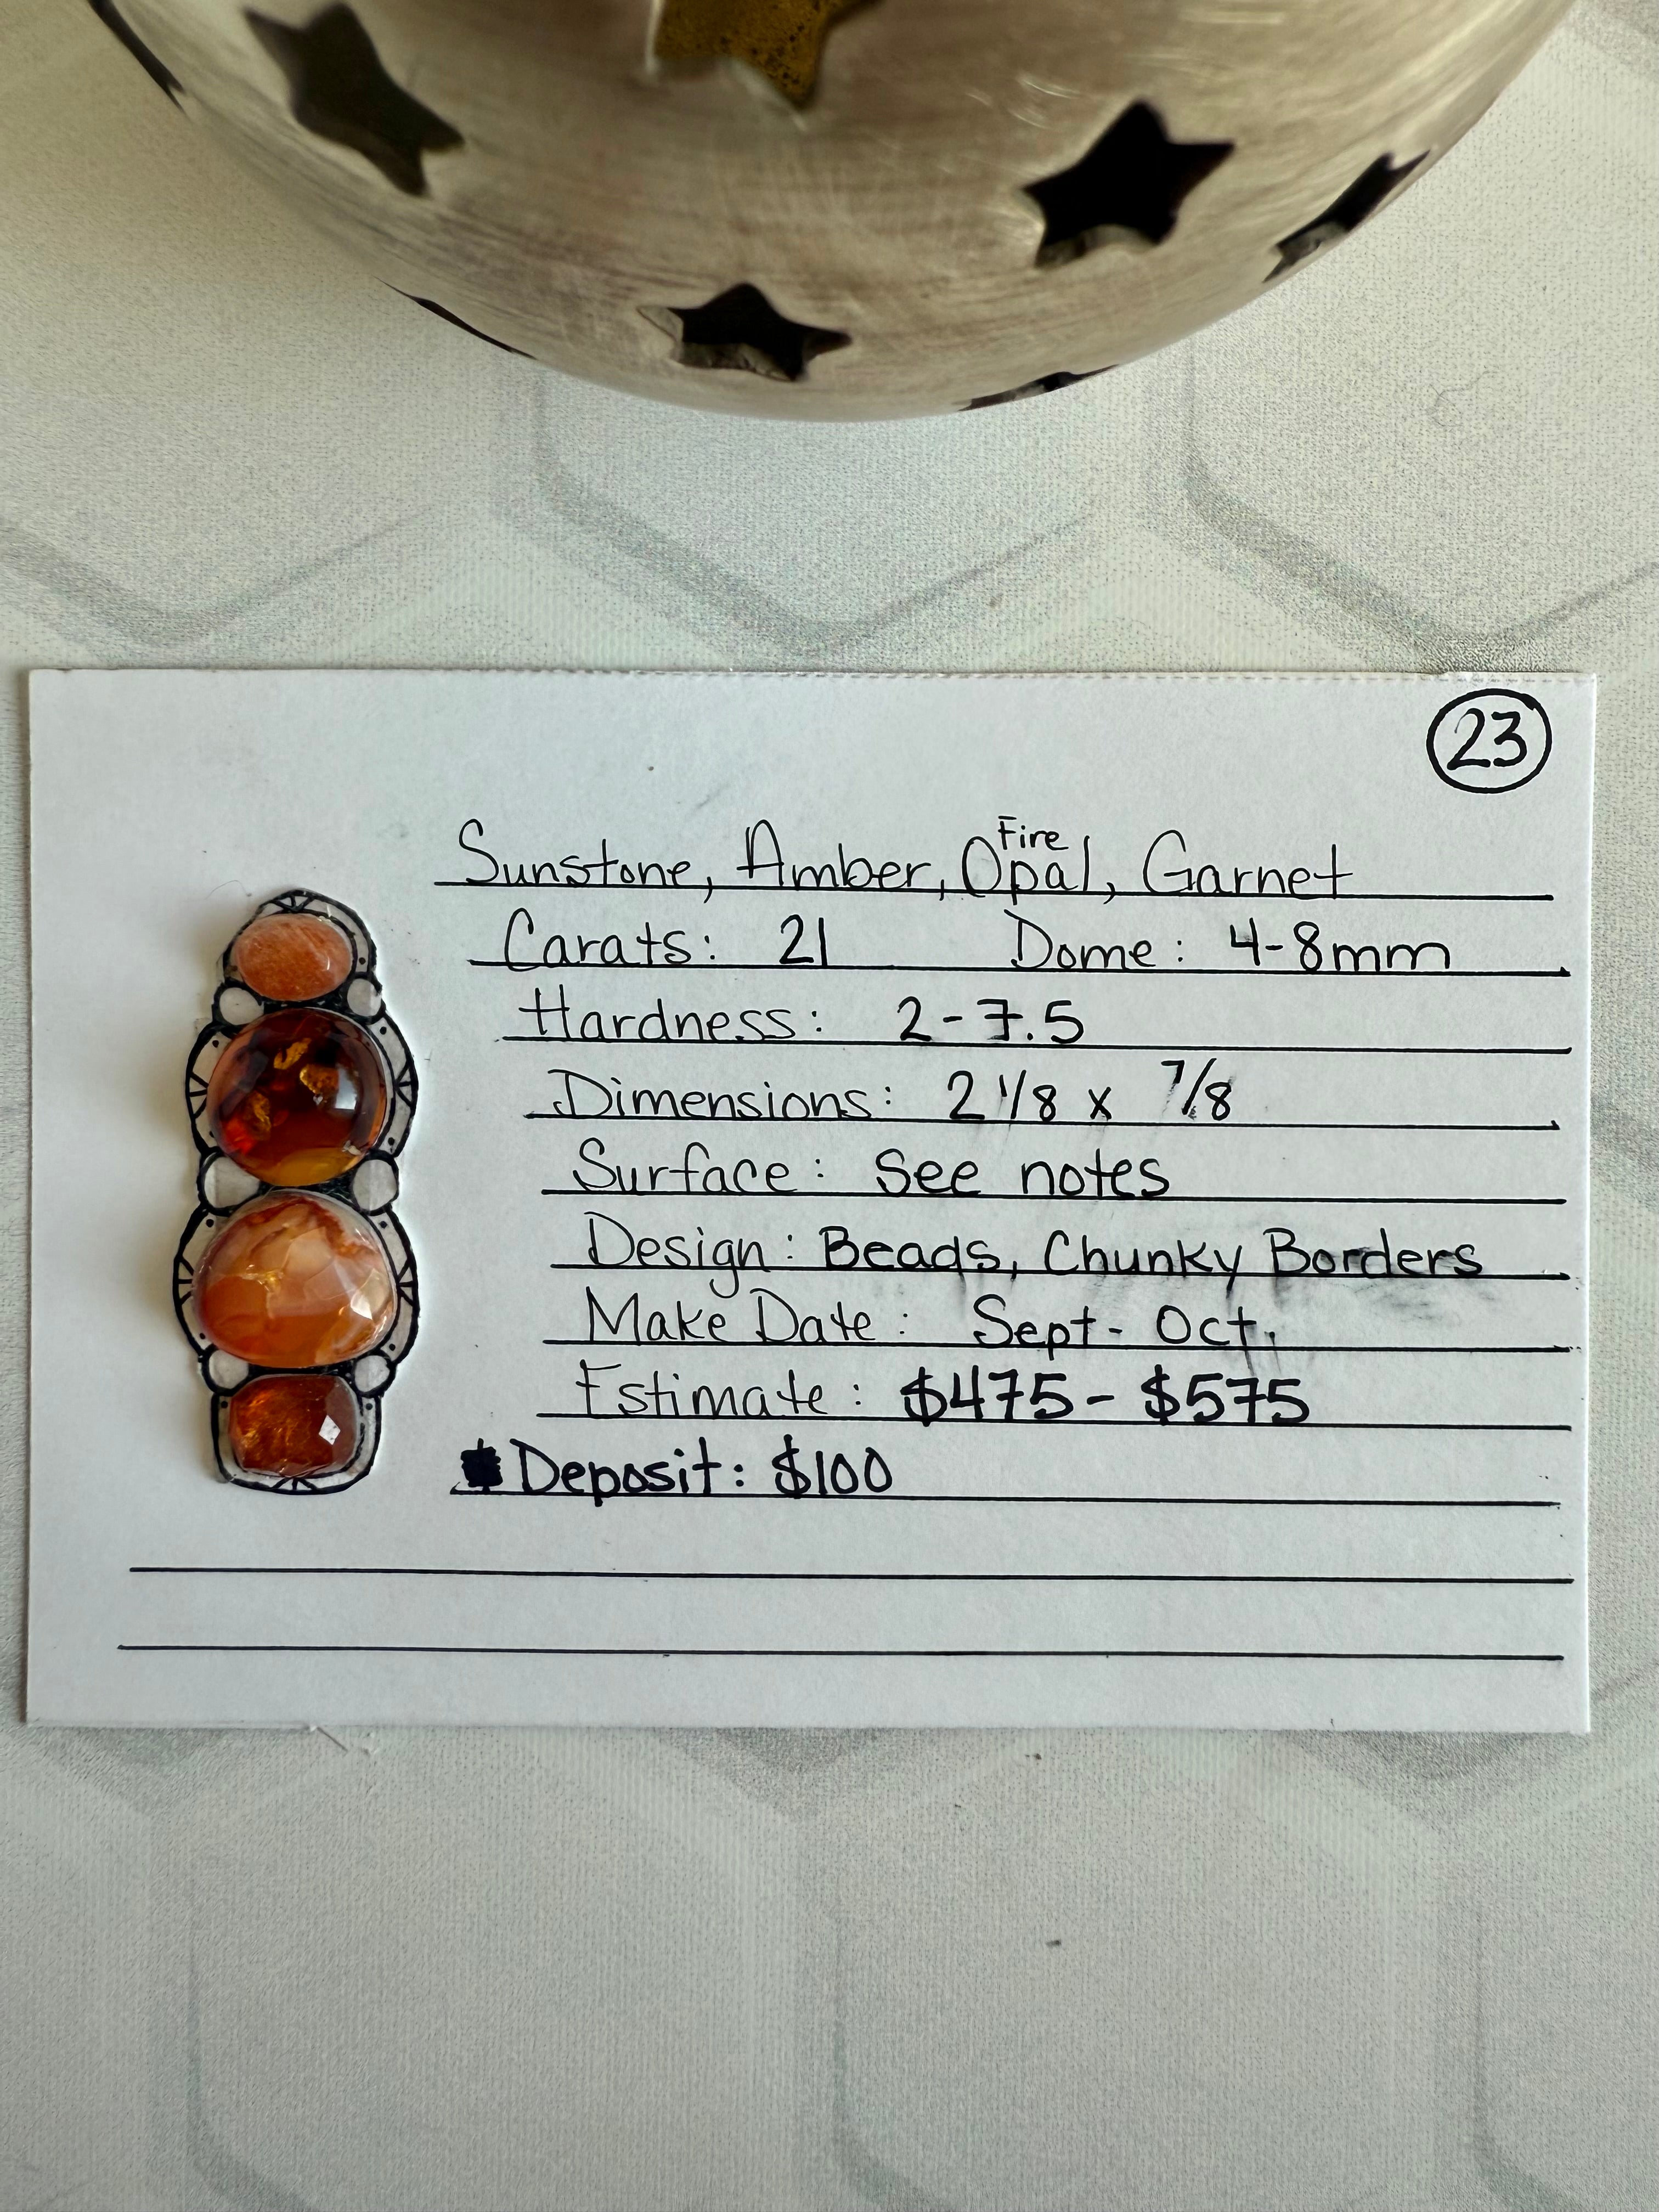 23
Sunstone, Amber, Fire Opal, Garnet
Carats: 21 Dome: 4-8mm
Hardness: 2-7.5
Dimensions: 2 1/8 x 7/8
Surface: See notes
Design: Beads, Chunky Borders
Make Date: Sept- Oct.
Estimate: $475- $575
Deposit: $100